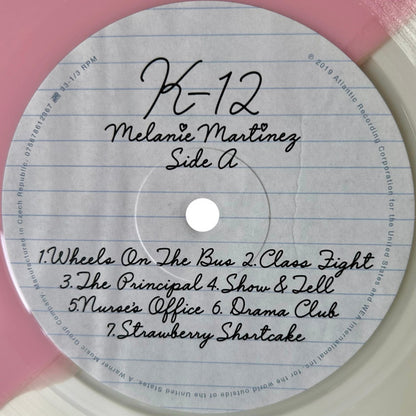 K-12
Melanie Martinez
Side A
1.Wheels On The Bus 2.Class Fight
3.The Principal 4.Show & Tell
5.Nurse's Office 6. Drama Club
7.Strawberry Shortcake
33-1/3 RPM
℗ 2019 Atlantic Recording Corporation for the United States and WEA International Inc. for the world outside of the United States. A Warner Music Group Company. Manufactured in Czech Republic. 075678612367